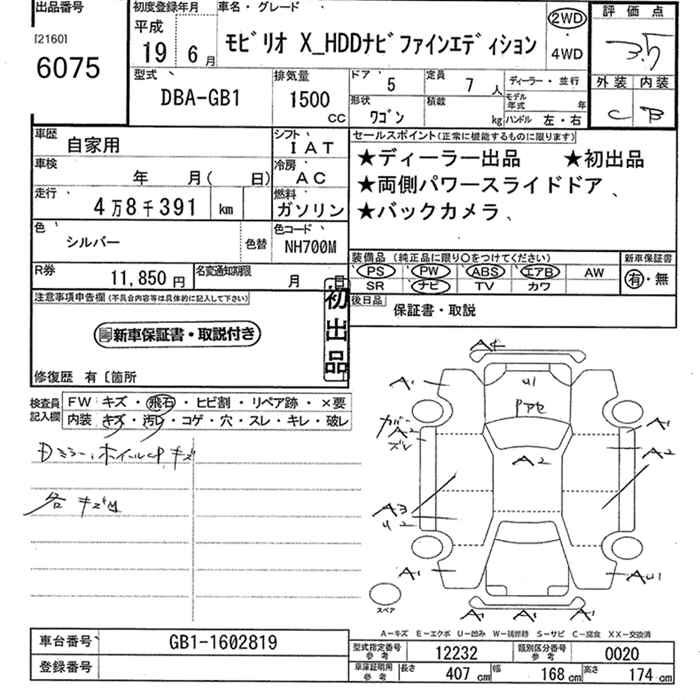 出品番号 初度登録年月 車名・グレード 評価点
[2160] 平成 2WD 3.5
6075 19 6月 モビリオ X_HDDナビファインエディション ・ 4WD
型式 排気量 ドア 5 定員 7人 ディーラー・並行 外装 内装
DBA-GB1 1500 CC 形状 ワゴン 積載 kg モデル年式 年 C B
ハンドル 左・右
車歴 自家用 シフト IAT セールスポイント(正常に機能するものに限ります)
車検 年 月( 日) 冷房 AC ★ディーラー出品 ★初出品
走行 4万8千391 km 燃料 ガソリン ★両側パワースライドドア、
★バックカメラ、
色 シルバー 色替 色コード NH700M
装備品 (純正品に限り○をつけてください) 新車保証書
R券 11,850円 名変通知期限 月 日 PS PW ABS エアB AW 有・無
SR ナビ TV カワ
注意事項申告欄(不具合内容等は具体的に記入して下さい) 初出品 後日品 保証書・取説
新車保証書・取説付き
修復歴 有〔箇所
検査員記入欄 FW キズ・飛石・ヒビ割・リペア跡・×要
内装 キズ・汚レ・コゲ・穴・スレ・キレ・破レ
Dミラー、ホイールcp.キズ
各キズ凹
A4
A1 U1 Pアセ
カバー A2 ズレ A1
A2 A1
A3 U2
A1 AU1
スペア A1 A1 A1
A-キズ E-エクボ U-凹み W-補修跡 S-サビ C-腐食 XX-交換済
車台番号 GB1-1602819 型式指定番号 参考 12232 類別区分番号 参考 0020
登録番号 車庫証明用 参考 長さ 407 cm 幅 168 cm 高さ 174 cm